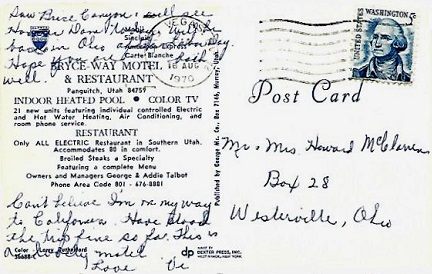 Saw Bryce Canyon: will see
Hoover Dam tomorrow. Will be
back in Ohio Labor Day.
Hope you are both
well.
Sinclair
Carte Blanche
BRYCE WAY MOTEL
& RESTAURANT
Panguitch, Utah 84759
INDOOR HEATED POOL • COLOR TV
21 new units featuring individual controlled Electric
and Hot Water Heating, Air Conditioning, and
room phone service.
RESTAURANT
Only ALL ELECTRIC Restaurant in Southern Utah.
Accommodates 80 in comfort.
Broiled Steaks a Specialty
Featuring a complete Menu
Owners and Managers George & Addie Talbot
Phone Area Code 801 - 676-8881
Can't believe I'm on my way
to California. Have stood
the trip fine so far. This is
a lovely motel.
Love Vi
Color - Larry Rutherford
dp
MADE BY
DEXTER PRESS, INC.
WEST NYACK, NEW YORK
Published by George Mc. Co., Box 7146, Murray, Utah
VEGAS
18 AUG
1970
U.S. POSTAGE
WASHINGTON
5c
Post Card
Mr. & Mrs Howard McClarren
Box 28
Westerville, Ohio